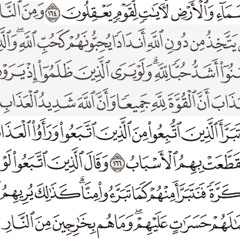 مَاءِ وَٱلْأَرْضِ لَـَٔايَٰتٍ لِّقَوْمٍ يَعْقِلُونَ ١٦٤ وَمِنَ ٱلنَّا
يَتَّخِذُ مِن دُونِ ٱللَّهِ أَندَادًا يُحِبُّونَهُمْ كَحُبِّ ٱللَّهِ وَٱلَّ
نُوٓا۟ أَشَدُّ حُبًّا لِّلَّهِ وَلَوْ يَرَى ٱلَّذِينَ ظَلَمُوٓا۟ إِذْ يَرَوْ
ذَابَ أَنَّ ٱلْقُوَّةَ لِلَّهِ جَمِيعًا وَأَنَّ ٱللَّهَ شَدِيدُ ٱلْعَذَابِ
تَبَرَّأَ ٱلَّذِينَ ٱتُّبِعُوا۟ مِنَ ٱلَّذِينَ ٱتَّبَعُوا۟ وَرَأَوُا۟ ٱلْعَذَا
قَطَّعَتْ بِهِمُ ٱلْأَسْبَابُ ١٦٦ وَقَالَ ٱلَّذِينَ ٱتَّبَعُوا۟ لَوْ
كَرَّةً فَنَتَبَرَّأَ مِنْهُمْ كَمَا تَبَرَّءُوا۟ مِنَّا كَذَٰلِكَ يُرِيهِمُ
مَٰلَهُمْ حَسَرَٰتٍ عَلَيْهِمْ وَمَا هُم بِخَٰرِجِينَ مِنَ ٱلنَّارِ